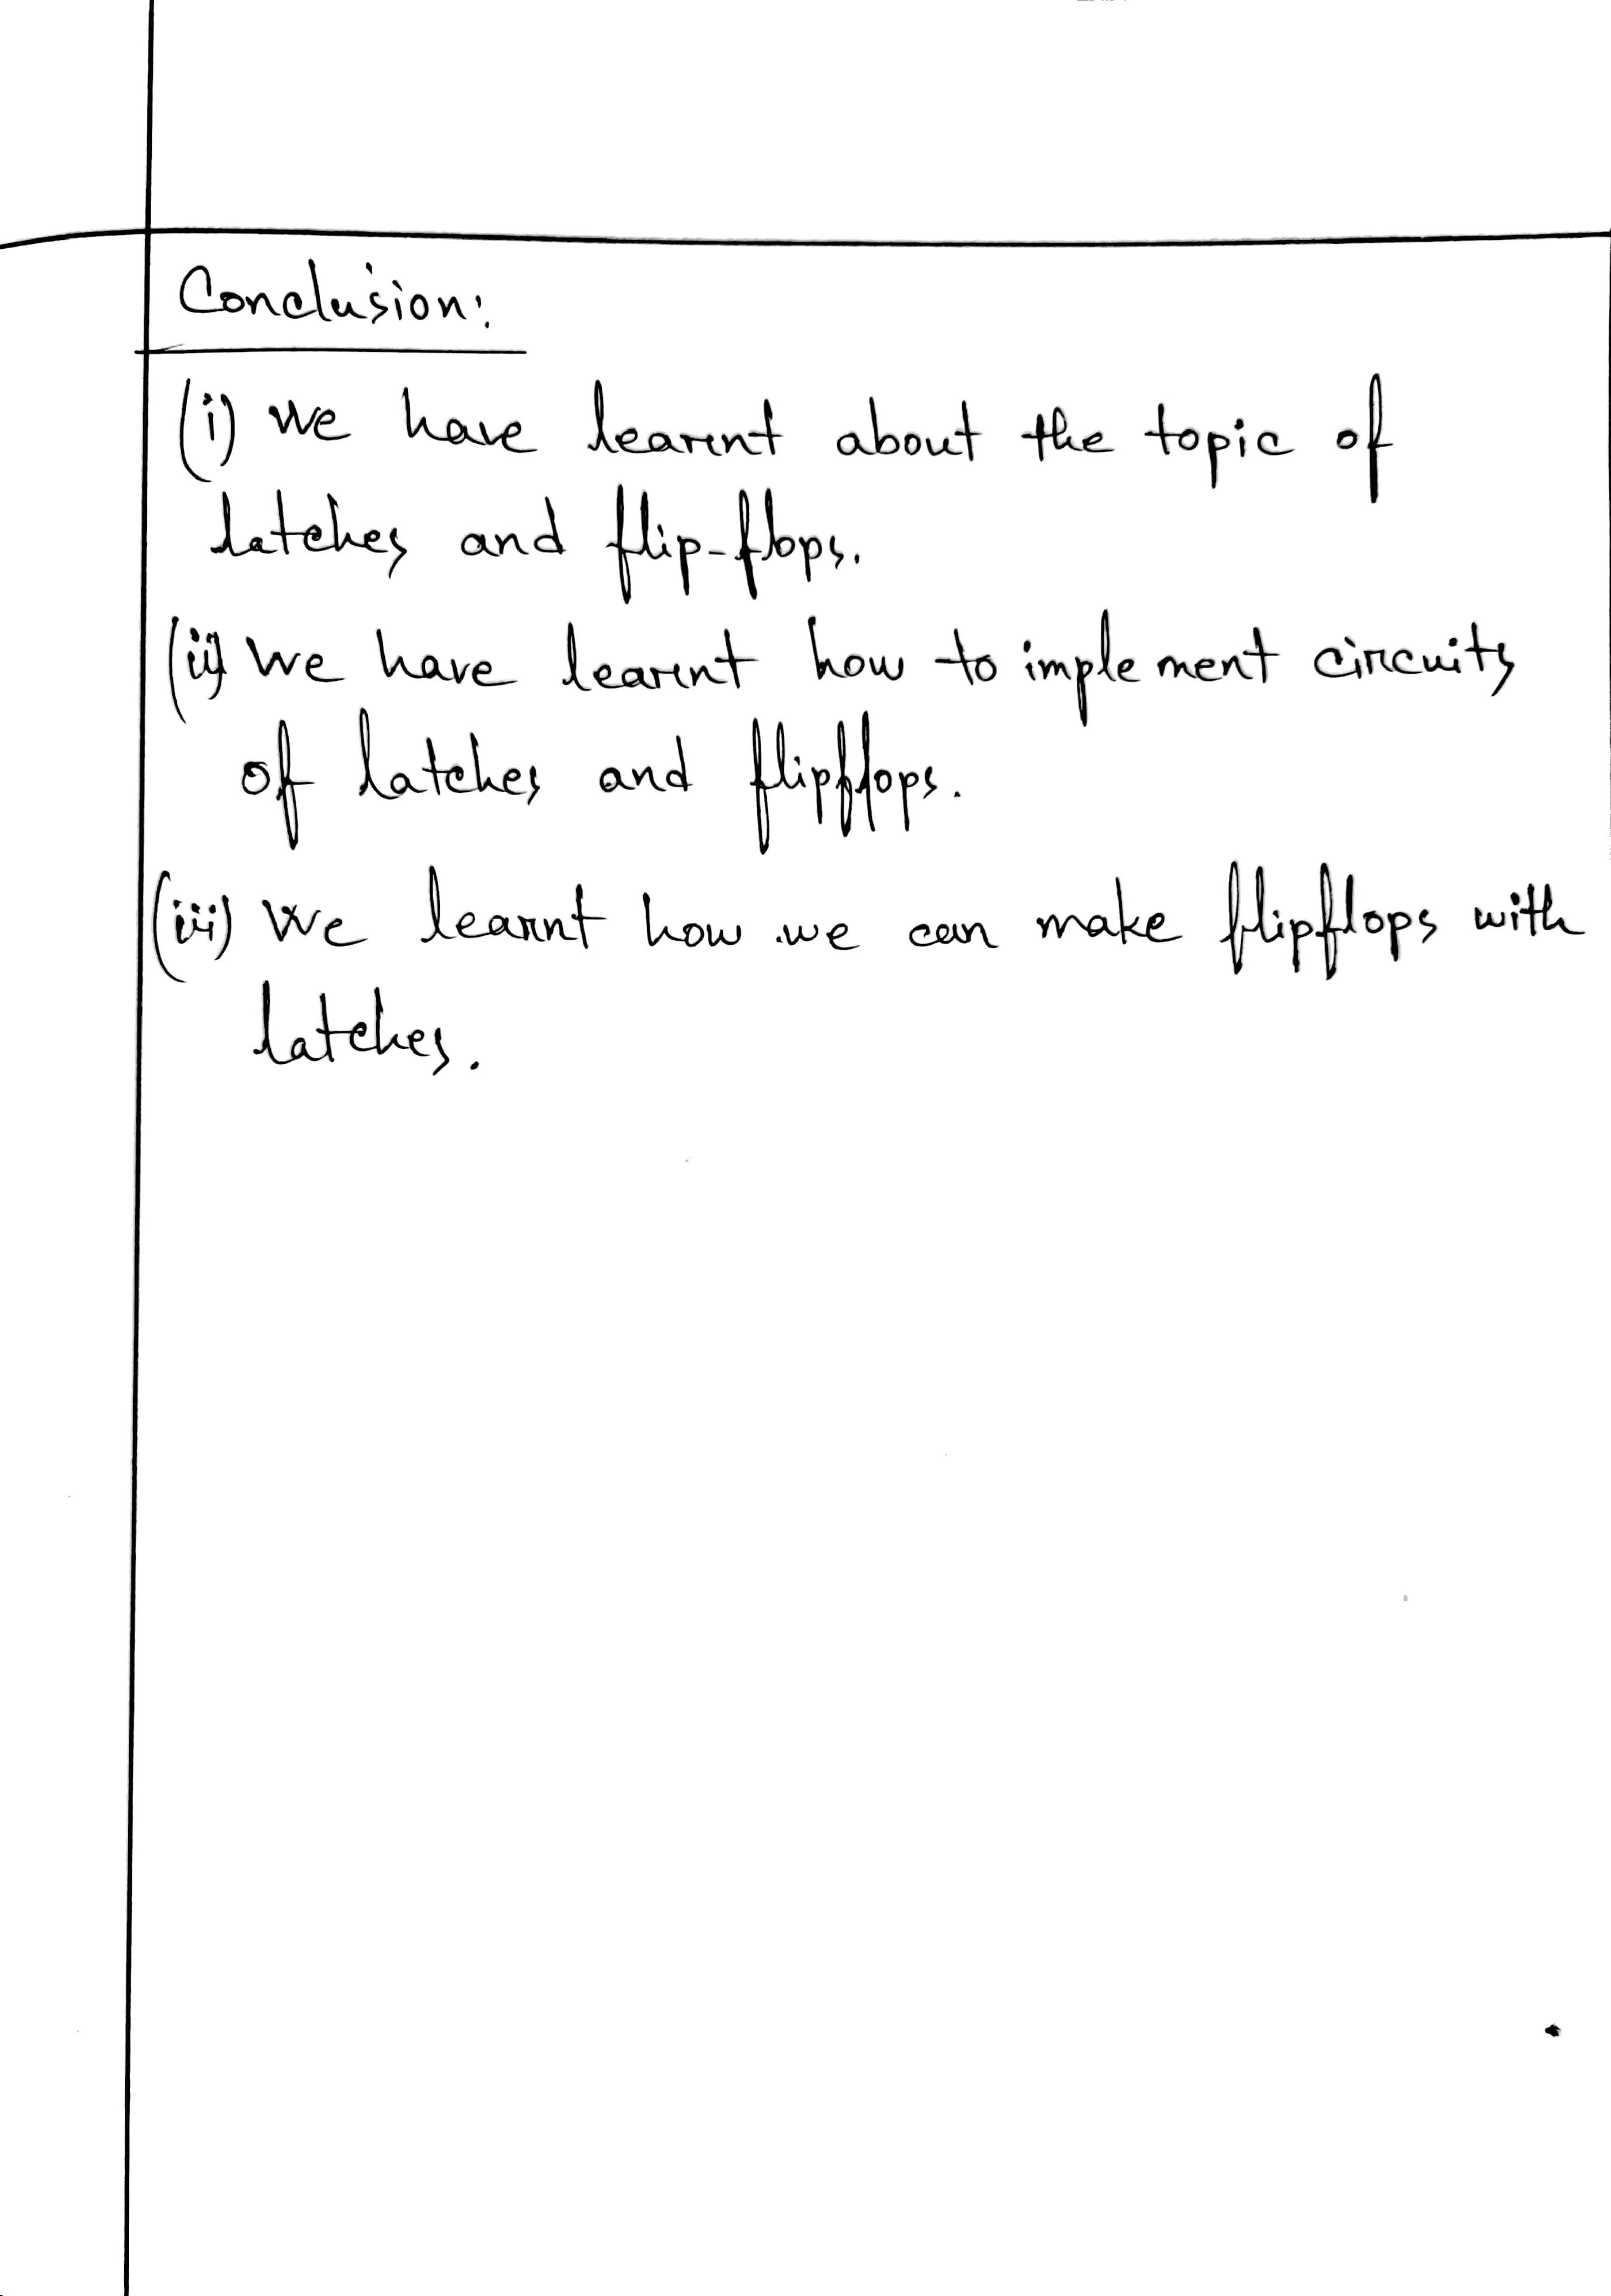 Conclusion:
(i) We have learnt about the topic of
latches and flip-flops.
(ii) We have learnt how to implement circuits
of latches and flipflops.
(iii) We learnt how we can make flipflops with
latches.